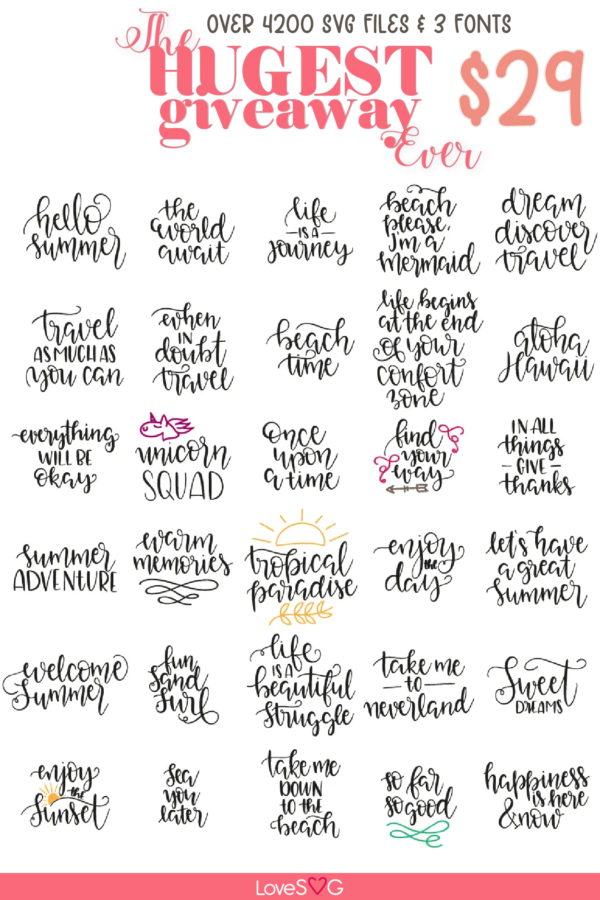 OVER 4200 SVG FILES & 3 FONTS
The
HUGEST
giveaway
Ever
$29
hello
summer
the
world
await
life
IS A
journey
beach
please,
i'm a
mermaid
dream
discover
travel
travel
AS MUCH AS
you can
when
IN
doubt
travel
beach
time
life begins
at the end
of your
confort
zone
aloha
Hawaii
everything
WILL BE
okay
unicorn
SQUAD
Once
upon
a time
find
your
way
IN ALL
things
GIVE
thanks
summer
ADVENTURE
warm
memories
tropical
paradise
enjoy
the
day
let's have
a great
summer
welcome
Summer
fun,
Sand
Surf
life
IS A
beautiful
struggle
take me
to
neverland
Sweet
DREAMS
enjoy
the
Sunset
Sea
you
later
take me
DOWN
to the
beach
so far
so good
happiness
is here
& now
LoveSVG